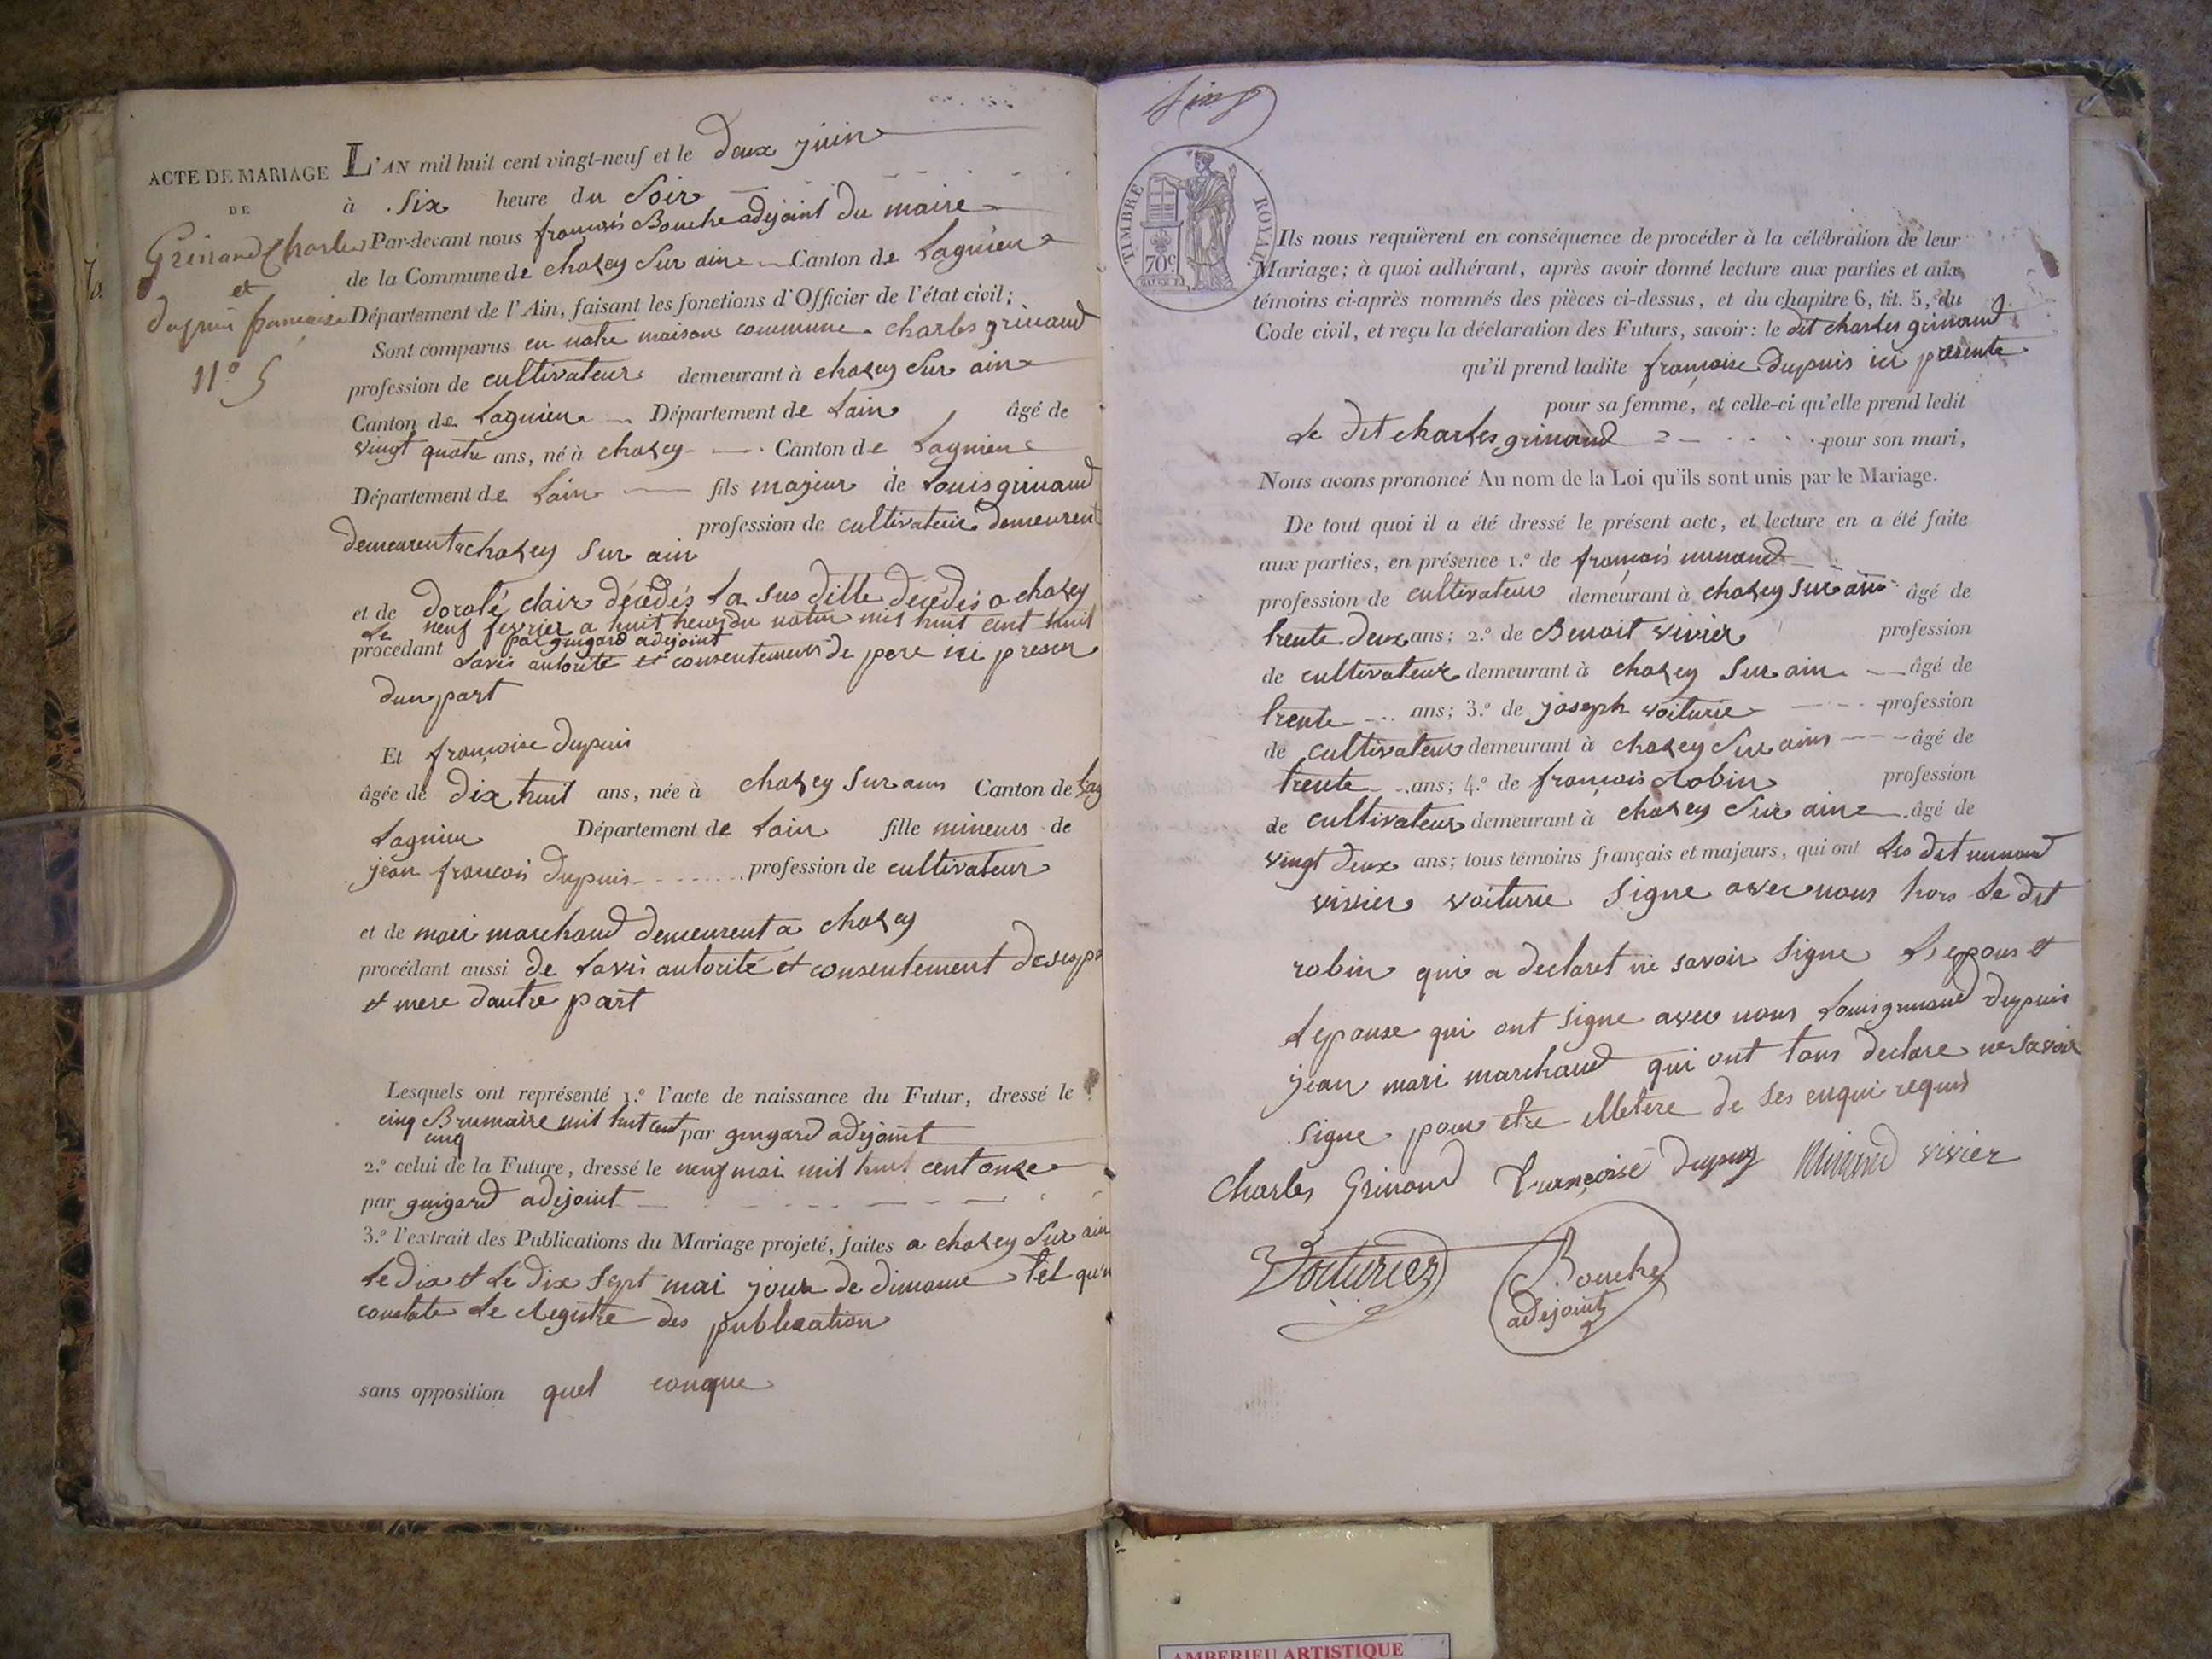 ACTE DE MARIAGE
DE
Grinand Charles
et
dupuis françoise
N.º 5
L'AN mil huit cent vingt-neuf et le deux juin
à six heure du soir
Par-devant nous françois Bouche adejoint du maire
de la Commune de chazey sur ain Canton de Lagnieu
Département de l'Ain, faisant les fonctions d'Officier de l'état civil;
Sont comparus en notre maison commune charles grinand
profession de cultivateur demeurant à chazey sur ain
Canton de Lagnieu Département de Lain âgé de
vingt quatre ans, né à chazey Canton de Lagnieu
Département de Lain fils majeur de Louis grinand
profession de cultivateur demeurent
demeurent a chazey sur ain
et de doroté clair décédés La sus ditte décédés a chazey
Le neuf fevrier a huit heur du matin mil huit cent huit
par guigard adejoint
procédant Lavis autorité et consentement de pere ici presen
dun part
Et françoise dupuis
âgée de dix huit ans, née à chazey sur ain Canton de Lag
Lagnieu Département de Lain fille mineure de
jean francois dupuis profession de cultivateur
et de mari marchand demeurent a chazey
procédant aussi de Lavis autorité et consentement de ses pe
et mere dautre part
Lesquels ont représenté 1.º l'acte de naissance du Futur, dressé le
cinq Brumaire mil huit cent par guigard adejoint
cinq
2.º celui de la Future, dressé le neuf mai mil huit cent onze
par guigard adejoint
3.º l'extrait des Publications du Mariage projeté, faites a chazey sur ain
Le dix et Le dix sept mai jour de dimanne tel qu'n
constate Le Registre des publication
sans opposition quel conque
TIMBRE ROYAL
70c
Ils nous requièrent en conséquence de procéder à la célébration de leur
Mariage; à quoi adhérant, après avoir donné lecture aux parties et aux
témoins ci-après nommés des pièces ci-dessus, et du chapitre 6, tit. 5, du
Code civil, et reçu la déclaration des Futurs, savoir: le dit charles grinand
qu'il prend ladite françoise dupuis ici présente
pour sa femme, et celle-ci qu'elle prend ledit
Le dit charles grinand pour son mari,
Nous avons prononcé Au nom de la Loi qu'ils sont unis par le Mariage.
De tout quoi il a été dressé le présent acte, et lecture en a été faite
aux parties, en présence 1.º de françois minand
profession de cultivateur demeurant à chazey sur ain âgé de
trente deux ans; 2.º de Benoit vivier profession
de cultivateur demeurant à chazey sur ain âgé de
trente ans; 3.º de joseph voiturie profession
de cultivateur demeurant à chazey sur ain âgé de
trente ans; 4.º de françois Robin profession
de cultivateur demeurant à chazey sur ain âgé de
vingt deux ans; tous témoins français et majeurs, qui ont Les dit minand
vivier voiturie signe avec nous hors Le dit
robin qui a declaret ne savoir signe Lepous et
Lepouse qui ont signe avec nous Louis grinand dupuis
jean mari marchand qui ont tous declare ne savoir
signe pour etre illetere de ses enqui requis
Charles Grinand Françoise dupuy Minand vivier
Voiturier Bouche
adejoint
AMBERIEU ARTISTIQUE